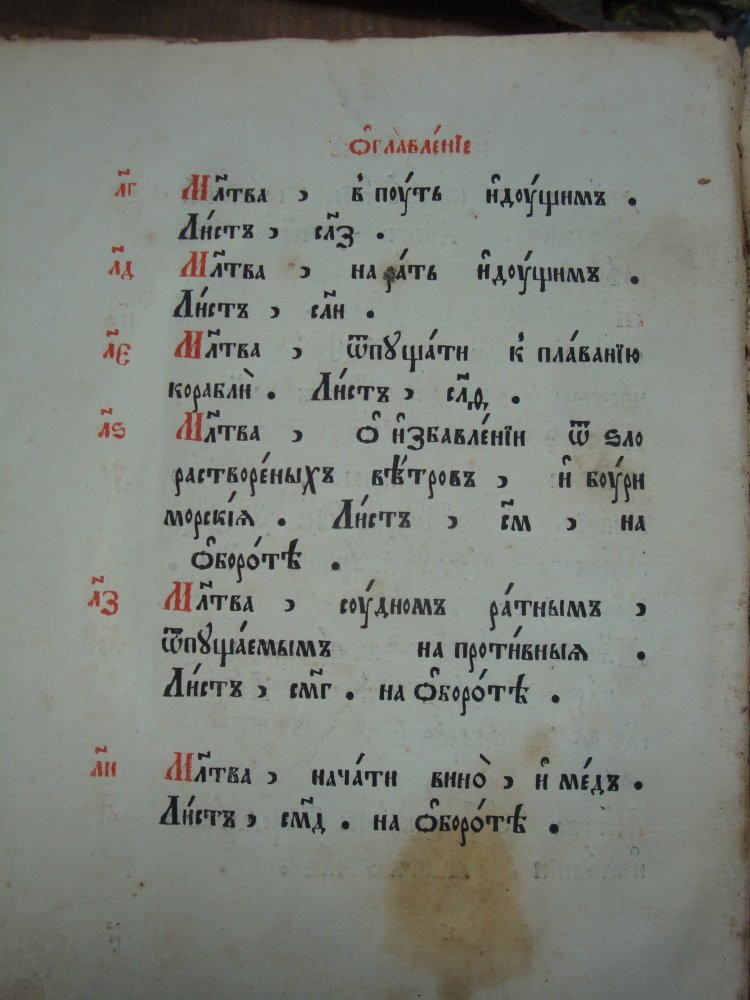 Ѻ҆главле́нїе
л҃г Мл҃тва , в̾ поу́ть и҆доу́щимъ .
Ли́стъ , сл҃з .
л҃д Мл҃тва , на ра́ть и҆доу́щимъ .
Ли́стъ , сл҃и .
л҃є Мл҃тва , ѿпꙋща́ти к̾ пла́ванїю
кораблѝ . Ли́стъ , сл҃ѳ .
л҃ѕ Мл҃тва , Ѻ҆ и҆збавле́нїи ѿ ѕло
растворе́ныхъ вѣ́тровъ , и҆ боу́ри
морскі́ѧ . Ли́стъ , с҃м , на
ѻ҆боро́тѣ .
л҃з Мл҃тва , соу́дномъ ра́тнымъ ,
ѿпꙋща́емымъ на проти́вныѧ .
Ли́стъ , см҃г . на ѻ҆боро́тѣ .
л҃и Мл҃тва , нача́ти вино̀ , и҆ ме́дъ .
Ли́стъ , см҃д . на ѻ҆боро́тѣ .